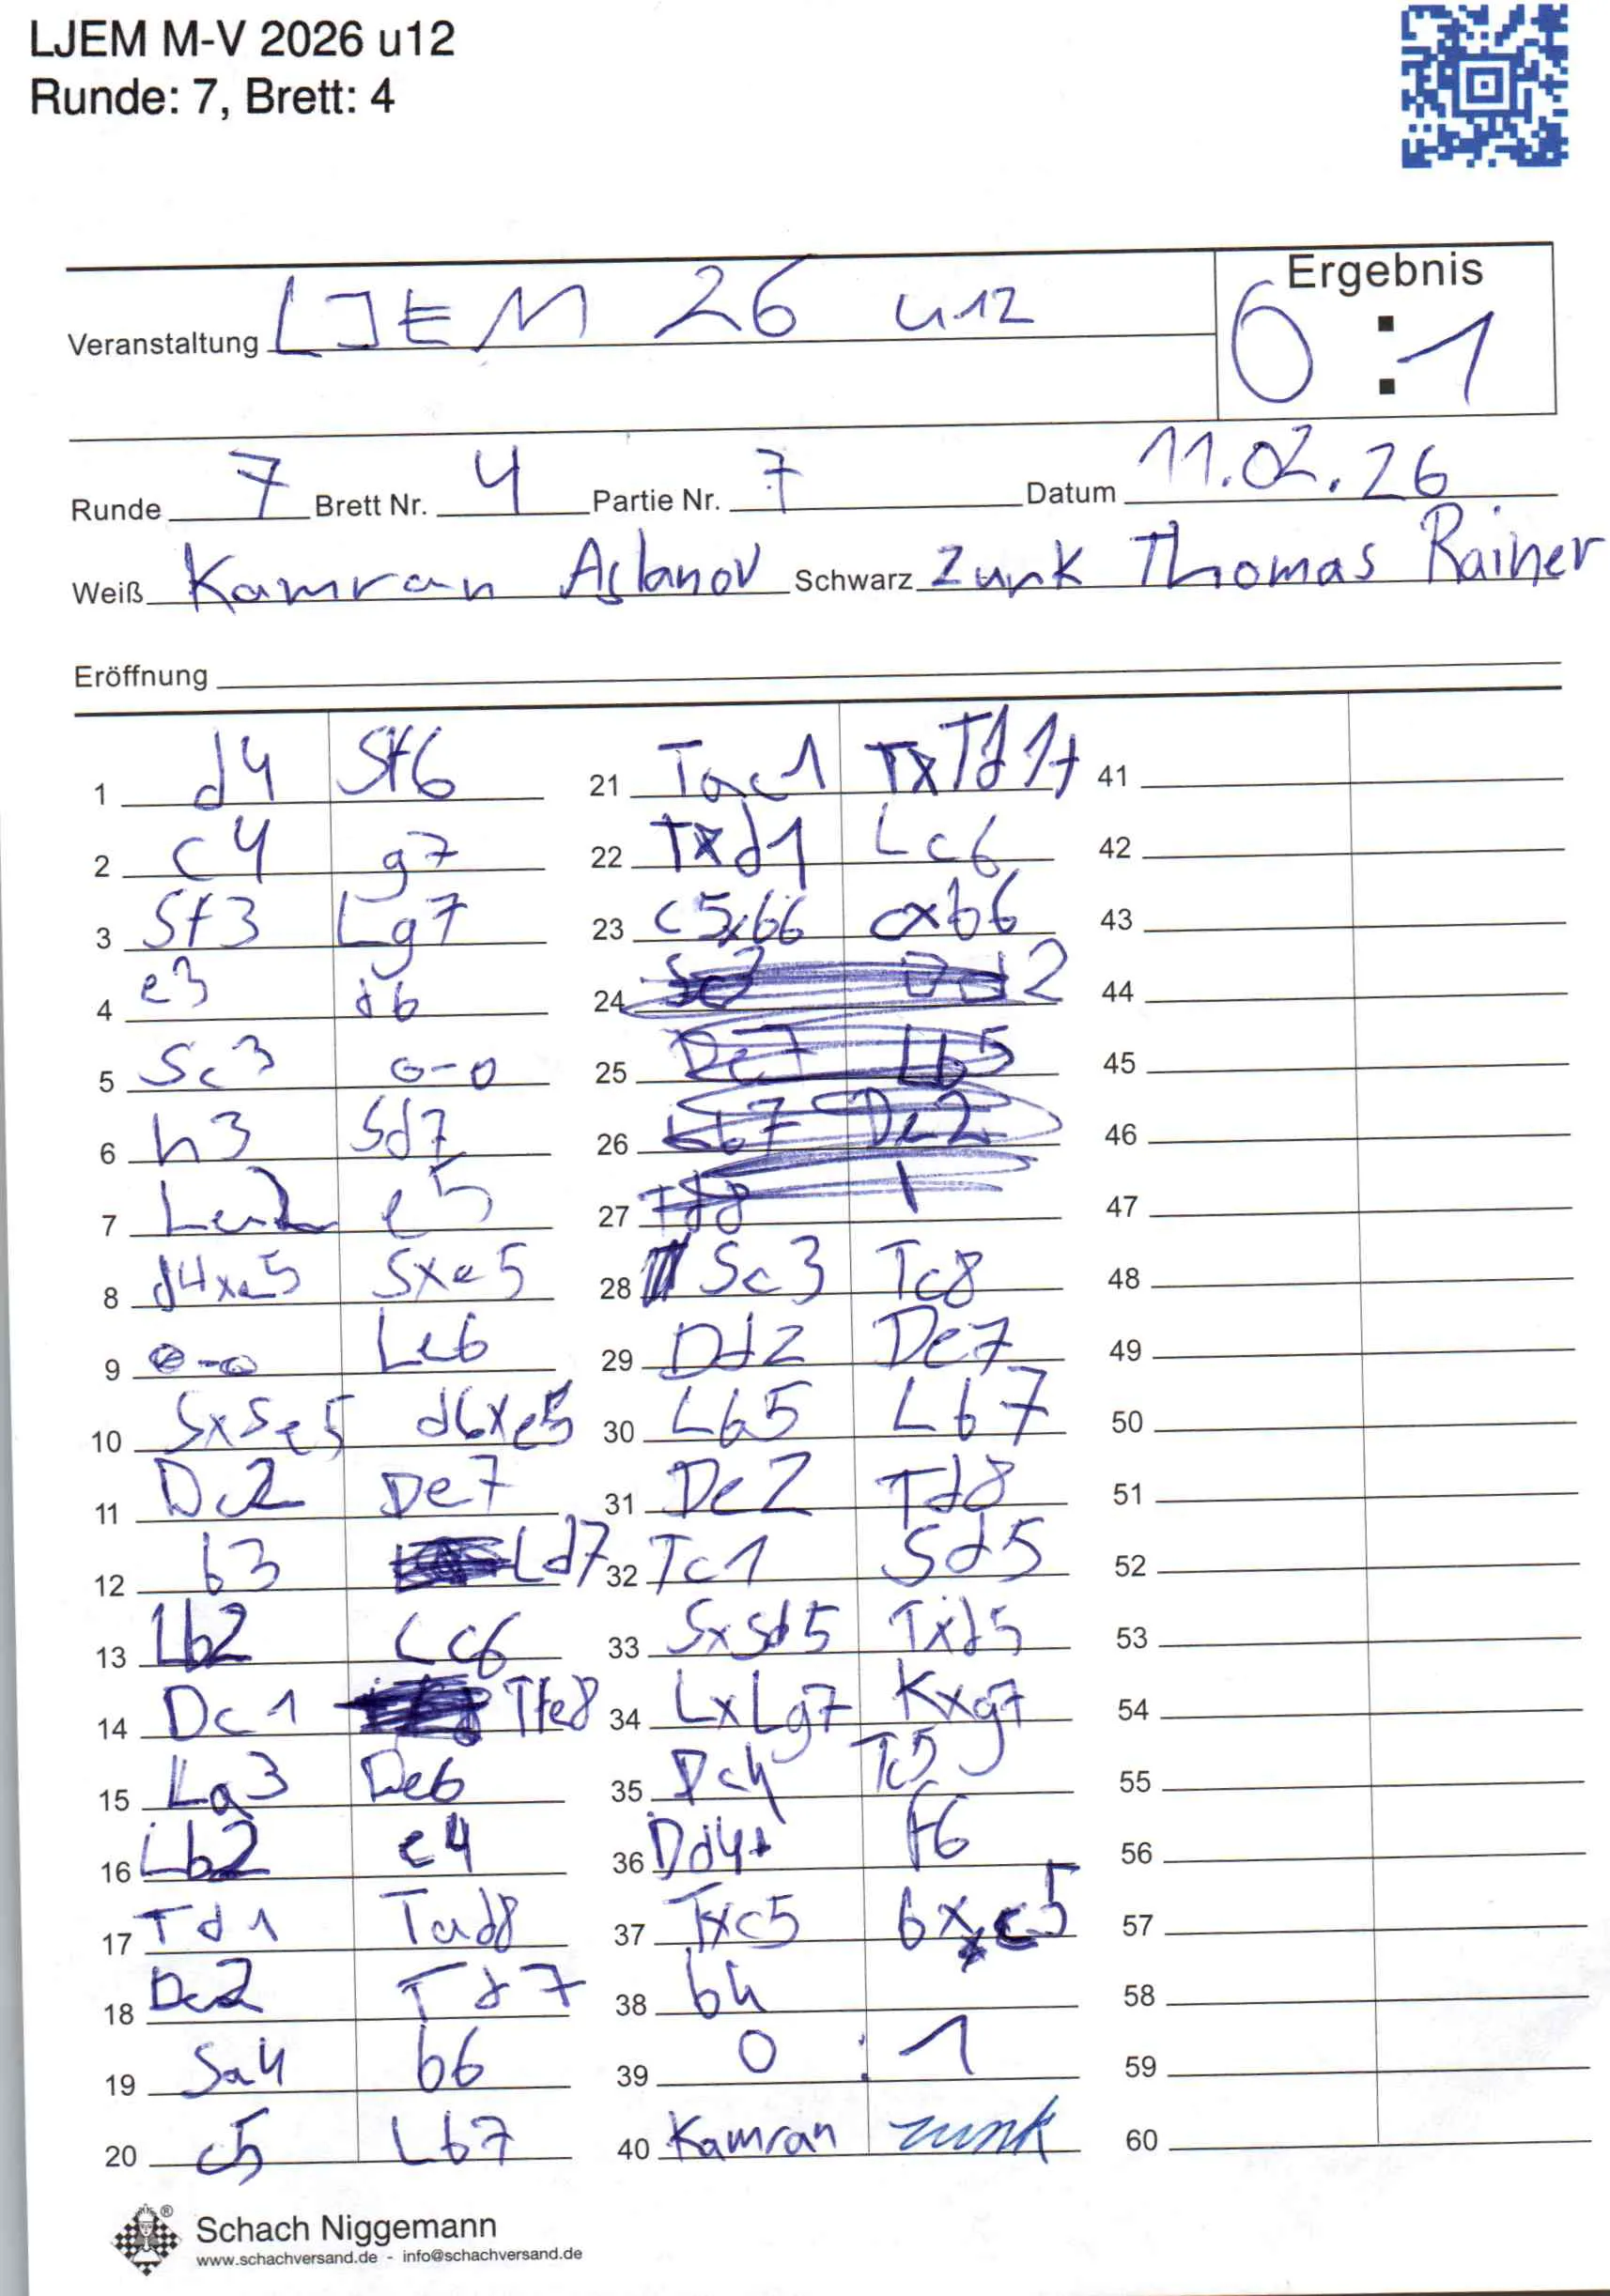 LJEM M-V 2026 u12
Runde: 7, Brett: 4
Ergebnis
Veranstaltung LJEM 26 u12
0 : 1
Runde 7 Brett Nr. 4 Partie Nr. 7 Datum 11.02.26
Weiß Kamran Aslanov Schwarz Zunk Thomas Rainer
Eröffnung
1 d4 Sf6 21 Tac1 TxTd1+ 41
2 c4 g7 22 Txd1 Lc6 42
3 Sf3 Lg7 23 c5xb6 cxb6 43
4 e3 d6 24 Dd2 44
5 Sc3 0-0 25 De7 Lb5 45
6 h3 Sd7 26 Lb7 De2 46
7 Le2 e5 27 Td8 47
8 d4xe5 Sxe5 28 Sc3 Tc8 48
9 0-0 Le6 29 Dd2 De7 49
10 SxSe5 d6xe5 30 Lb5 Lb7 50
11 Dc2 De7 31 De2 Td8 51
12 b3 Ld7 32 Tc1 Sd5 52
13 Lb2 Lc6 33 SxSd5 Txd5 53
14 Dc1 Tfe8 34 LxLg7 Kxg7 54
15 La3 De6 35 Dc4 Tc5 55
16 Lb2 e4 36 Dd4+ f6 56
17 Td1 Tad8 37 Txc5 bxc5 57
18 Dc2 Td7 38 b4 58
19 Sa4 b6 39 0 : 1 59
20 c5 Lb7 40 Kamran Zunk 60
Schach Niggemann
www.schachversand.de - info@schachversand.de